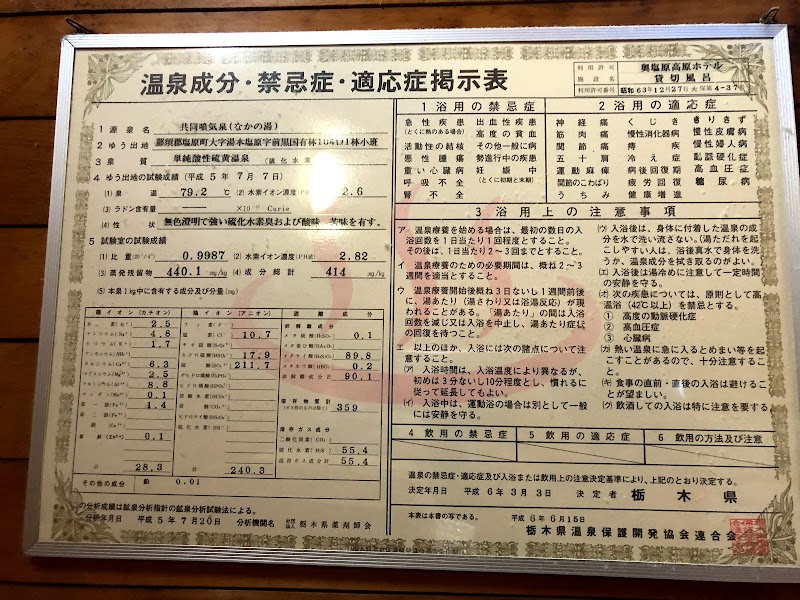 温泉成分・禁忌症・適応症掲示表
利用許可施設名 奥塩原高原ホテル 貸切風呂
利用許可番号 昭和63年12月27日
1 源泉名 共同噴気泉(なかの湯)
2 ゆう出地
3 泉質 単純酸性硫黄温泉
4 ゆう出地の試験成績(平成5年7月7日)
(1) 泉温 79.2 ℃ (2) 水素イオン濃度(PH値) 2.6
(3) ラドン含有量 Curie
(4) 性状 無色澄明で強い硫化水素臭および酸味、苦味を有す。
5 試験室の試験成績
(1) 比重 0.9987 (2) 水素イオン濃度(PH値) 2.82
(3) 蒸発残留物 440.1 mg/kg (4) 成分総計 414 mg/kg
(5) 本泉1kg中に含有する成分及び分量(mg)
陽イオン(カチオン)
2.5
4.8
1.7
6.3
2.5
8.8
0.1
1.4
0.1
計 28.3
陰イオン(アニオン)
10.7
17.9
211.7
計 240.3
遊離成分
非解離成分
0.1
89.8
0.2
非解離成分計 90.1
溶存物質計 359
(ガス性のものは除く)
溶存ガス成分
硫化水素(H₂S) 55.4
溶存ガス成分計 55.4
その他の成分 鉛 0.01
の分析成績は鉱泉分析指針の鉱泉分析試験法による。
分析年月日 平成5年7月20日 分析機関名 栃木県薬剤師会
1 浴用の禁忌症
急性疾患 出血性疾患
(とくに熱のある場合) 高度の貧血
活動性の結核 その他一般に病
悪性腫瘍 勢進行中の疾患
重い心臓病 妊娠中
呼吸不全 (とくに初期と末期)
腎不全
2 浴用の適応症
神経痛 くじき きりきず
筋肉痛 慢性消化器病 慢性皮膚病
関節痛 痔疾 慢性婦人病
五十肩 冷え症 動脈硬化症
運動麻痺 病後回復期 高血圧症
関節のこわばり 疲労回復 糖尿病
うちみ 健康増進
3 浴用上の注意事項
ア 温泉療養を始める場合は、最初の数日の入
浴回数を1日当たり1回程度とすること。
その後は、1日当たり2~3回までとすること。
イ 温泉療養のための必要期間は、概ね2~3
週間を適当とすること。
ウ 温泉療養開始後概ね3日ないし1週間前後
に、湯あたり(湯さわり又は浴湯反応)が現
われることがある。「湯あたり」の間は入浴
回数を減じ又は入浴を中止し、湯あたり症状
の回復を待つこと。
エ 以上のほか、入浴には次の諸点について注
意すること。
(ア) 入浴時間は、入浴温度により異なるが、
初めは3分ないし10分程度とし、慣れるに
従って延長してもよい。
(イ) 入浴中は、運動浴の場合は別として一般
には安静を守る。
(ウ) 入浴後は、身体に付着した温泉の成
分を水で洗い流さない。(湯ただれを起
こしやすい人は、浴後真水で身体を洗
うか、温泉成分を拭き取るのがよい。)
(エ) 入浴後は湯冷めに注意して一定時間
の安静を守る。
(オ) 次の疾患については、原則として高温
浴(42℃以上)を禁忌とする。
① 高度の動脈硬化症
② 高血圧症
③ 心臓病
(カ) 熱い温泉に急に入るとめまい等を起
こすことがあるので、十分注意するこ
と。
(キ) 食事の直前・直後の入浴は避けるこ
とが望ましい。
(ク) 飲酒しての入浴は特に注意する
4 飲用の禁忌症
5 飲用の適応症
6 飲用の方法及び注意
温泉の禁忌症・適応症及び入浴又は飲用上の注意決定基準により、上記のとおり決定する。
決定年月日 平成6年3月3日 決定者 栃木県
本表は本書の写である。 平成6年6月15日
栃木県温泉保護開発協会連合会